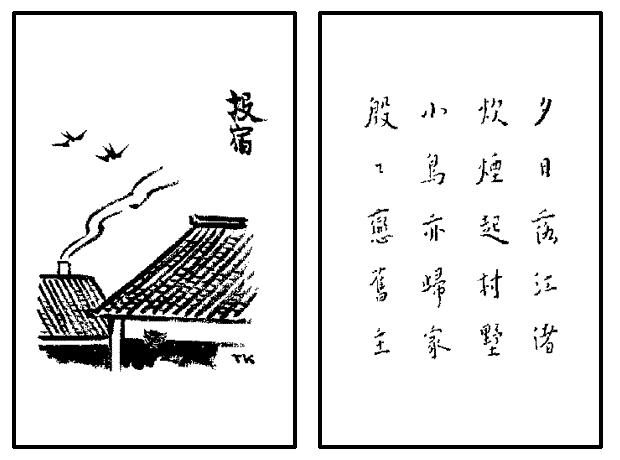 投宿
TK
夕日落江渚
炊煙起村墅
小鳥亦歸家
殷々戀舊主